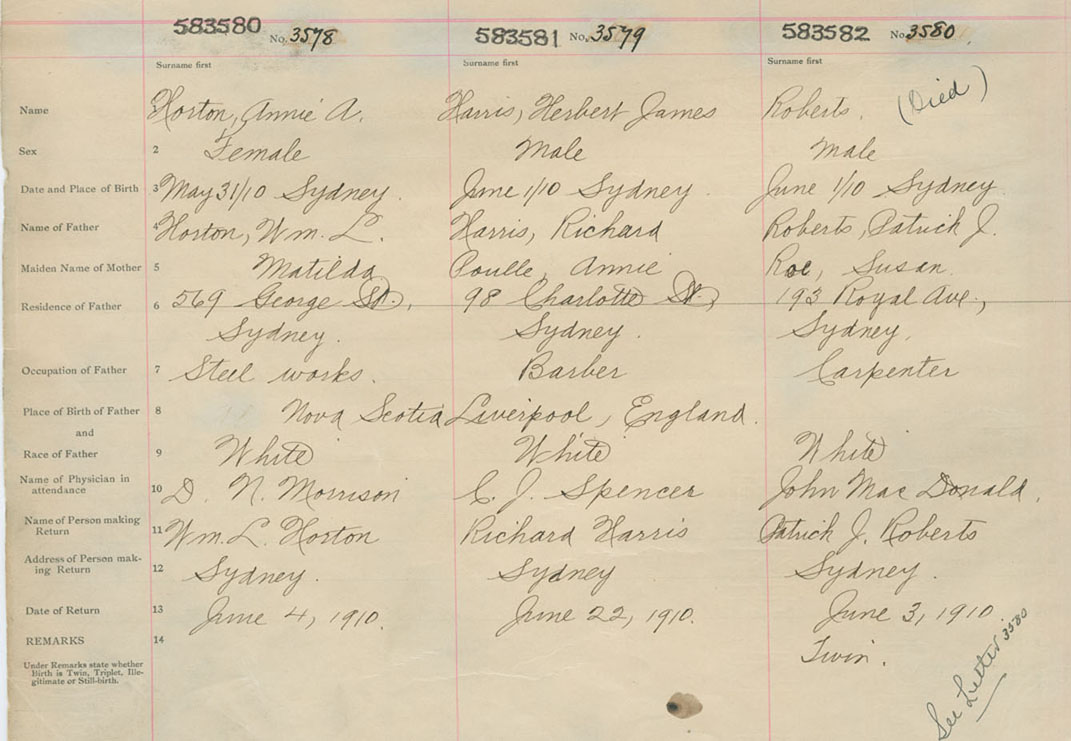 583580 No. 3578 583581 No. 3579 583582 No. 3580
Surname first Surname first Surname first
Name Horton, Annie A. Harris, Herbert James Roberts. (Died)
Sex 2 Female Male Male
Date and Place of Birth 3 May 31/10 Sydney. June 1/10 Sydney. June 1/10 Sydney
Name of Father 4 Horton, Wm. L. Harris, Richard Roberts, Patrick J.
Maiden Name of Mother 5 Matilda Poulle, Annie Roe, Susan.
Residence of Father 6 569 George St., 98 Charlotte St., 193 Royal Ave.,
Sydney. Sydney. Sydney.
Occupation of Father 7 Steel works. Barber Carpenter
Place of Birth of Father 8 Nova Scotia Liverpool, England.
and
Race of Father 9 White White White
Name of Physician in
attendance 10 D. N. Morrison C. J. Spencer John Mac Donald.
Name of Person making
Return 11 Wm. L. Horton Richard Harris Patrick J. Roberts
Address of Person mak-
ing Return 12 Sydney. Sydney Sydney.
Date of Return 13 June 4, 1910. June 22, 1910. June 3, 1910.
REMARKS 14
Under Remarks state whether
Birth is Twin, Triplet, Ille-
gitimate or Still-birth.
Twin.
See Letter 3580